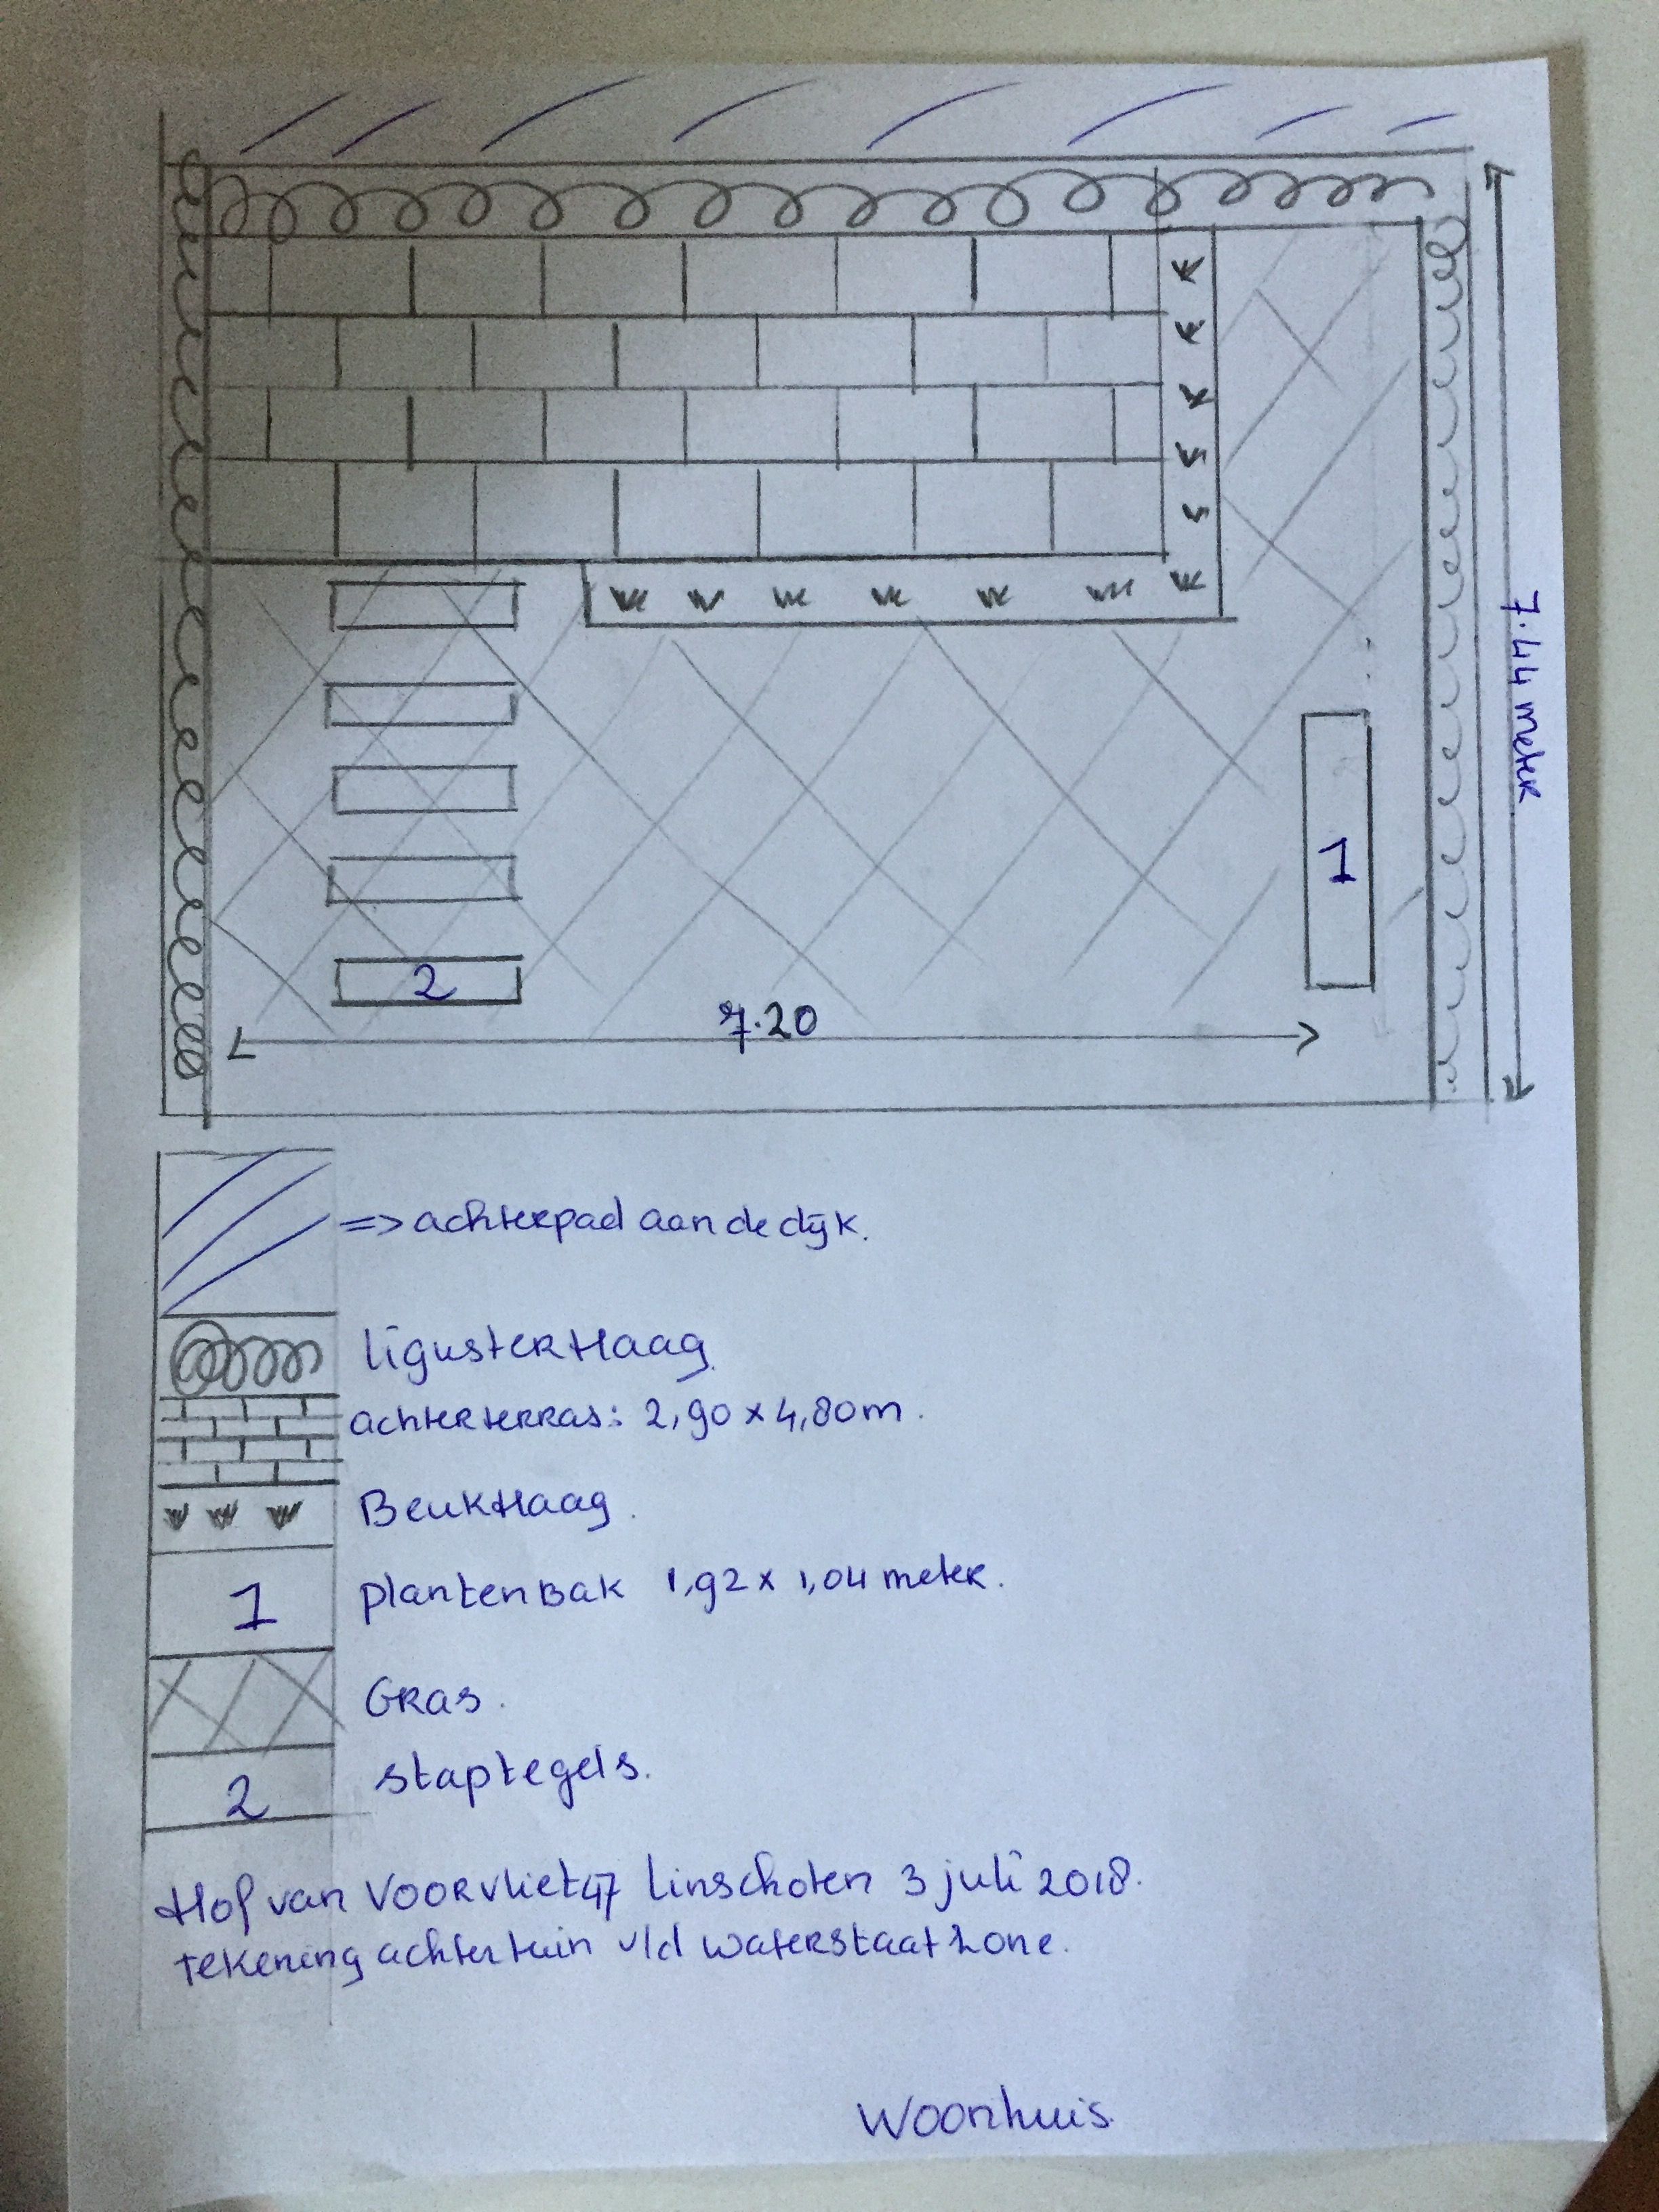 7.44 meter
1
2
7.20
=> achterpad aan de dijk.
ligusterHaag.
achterterras: 2,90 x 4,80m.
BeukHaag.
1 plantenBak 1,92 x 1,04 meter.
GRas.
2 staptegels.
Hof van Voorvliet 47 Linschoten 3 juli 2018.
tekening achtertuin v/d waterstaat zone.
Woonhuis.